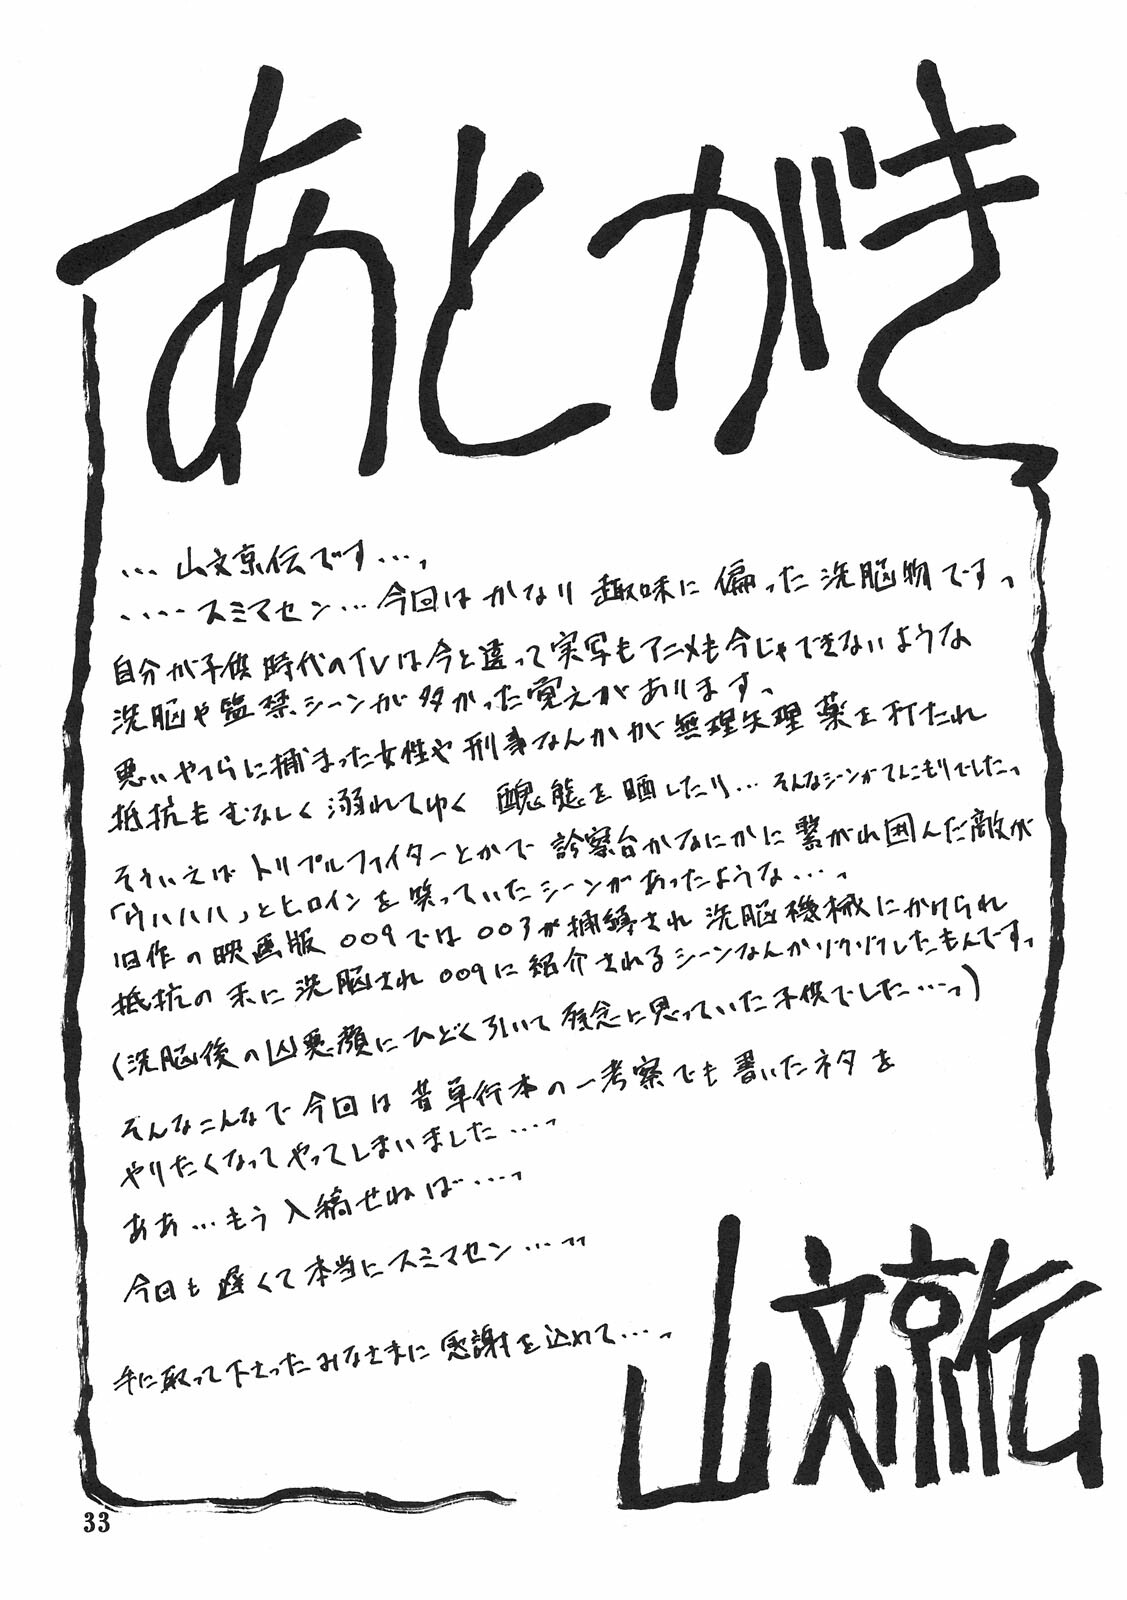 あとがき
…山文京伝です…っ
……スミマセン…今回はかなり趣味に偏った洗脳物ですっ
自分が子供時代のTVは今と違って実写もアニメも今じゃできないような
洗脳や監禁シーンが多かった覚えがあります。
悪いやつらに捕まった女性や刑事なんかが無理矢理薬を打たれ
抵抗もむなしく溺れてゆく醜態を晒したり…そんなシーンがてんこもりでしたっ
そういえばトリプルファイターとかで診察台かなにかに繋がれ囲んだ敵が
「ウハハハ」とヒロインを笑っていたシーンがあったような…っ
旧作の映画版009では003が捕縛され洗脳機械にかけられ
抵抗の末に洗脳され009に紹介されるシーンなんかゾクゾクしたもんですっ
(洗脳後の凶悪顔にひどく引いて残念に思っていた子供でした…っ)
そんなこんなで今回は昔単行本の一考察でも書いたネタを
やりたくなってやってしまいました…っ
ああ…もう入稿せねば…っ
今回も遅くて本当にスミマセン…っっ
手に取って下さったみなさまに感謝を込めて…っ
山文京伝
33